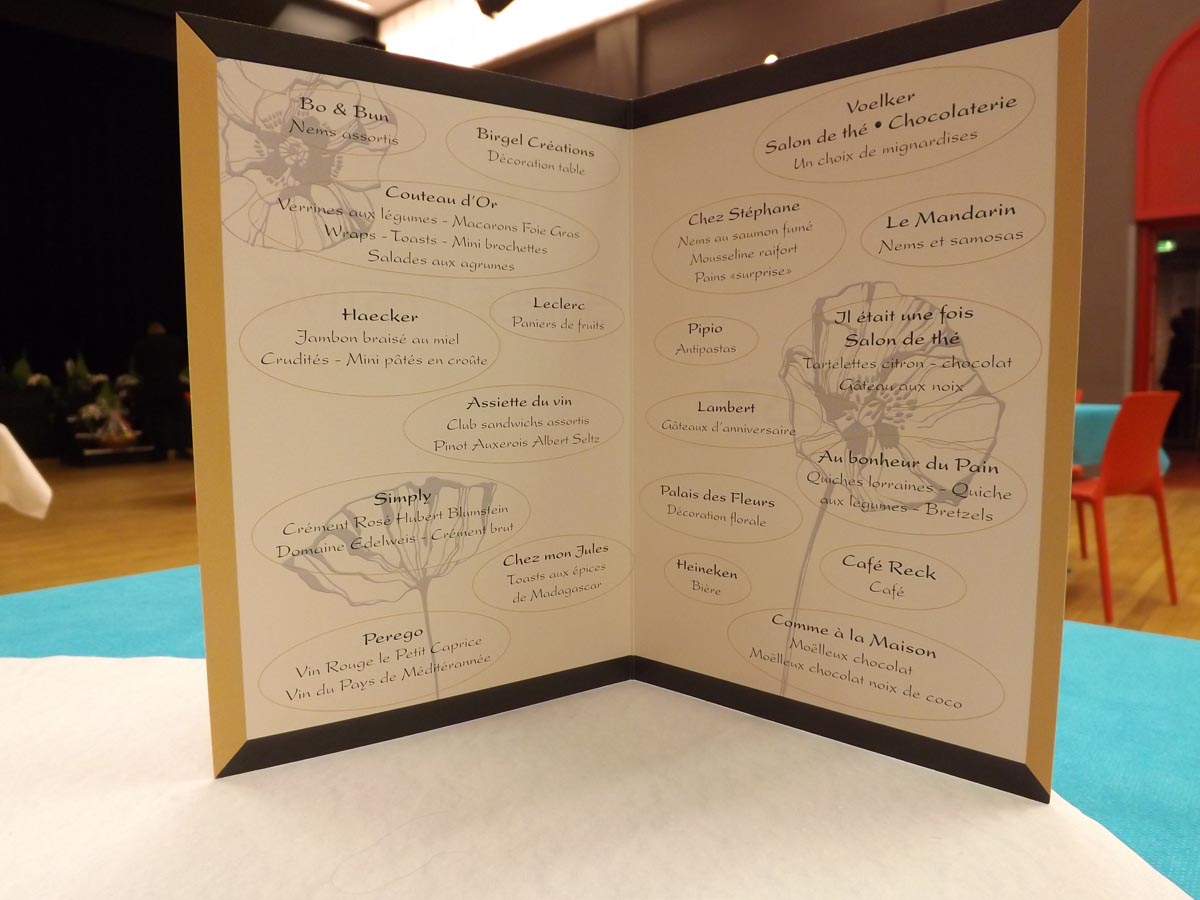 Bo & Bun
Nems assortis
Birgel Créations
Décoration table
Couteau d'Or
Verrines aux légumes - Macarons Foie Gras
Wraps - Toasts - Mini brochettes
Salades aux agrumes
Haecker
Jambon braisé au miel
Crudités - Mini pâtés en croûte
Leclerc
Paniers de fruits
Assiette du vin
Club sandwichs assortis
Pinot Auxerois Albert Seltz
Simply
Crément Rosé Hubert Blumstein
Domaine Edelweis - Crément brut
Chez mon Jules
Toasts aux épices
de Madagascar
Perego
Vin Rouge le Petit Caprice
Vin du Pays de Méditérannée
Voelker
Salon de thé • Chocolaterie
Un choix de mignardises
Chez Stéphane
Nems au saumon fumé
Mousseline raifort
Pains «surprise»
Le Mandarin
Nems et samosas
Pipio
Antipastas
Il était une fois
Salon de thé
Tartelettes citron - chocolat
Gâteau aux noix
Lambert
Gâteaux d'anniversaire
Au bonheur du Pain
Quiches lorraines - Quiche
aux légumes - Bretzels
Palais des Fleurs
Décoration florale
Heineken
Bière
Café Reck
Café
Comme à la Maison
Moëlleux chocolat
Moëlleux chocolat noix de coco